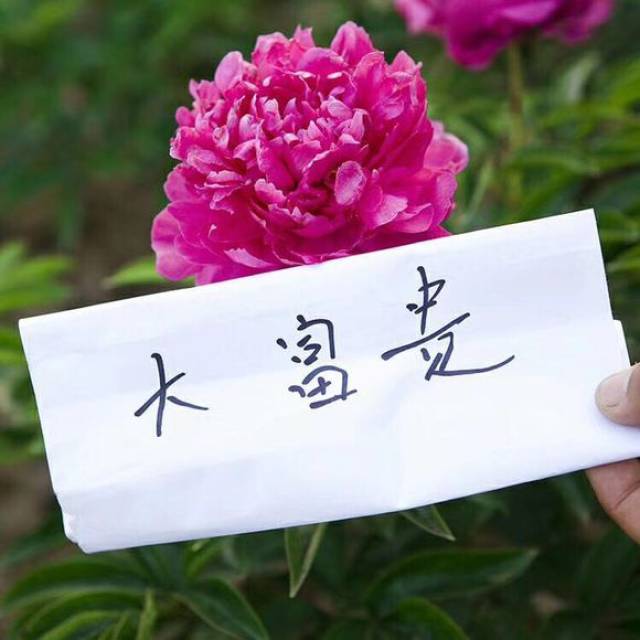 大富贵